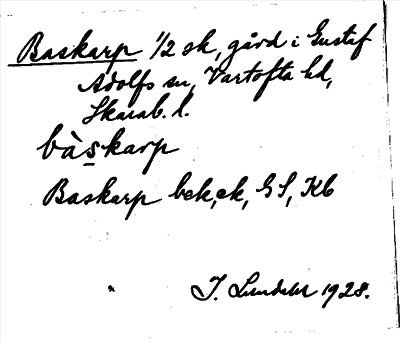 Baskarp 1/2 sk, gård i Gustaf
Adolfs sn, Vartofta hd,
Skarab. l.
bàskarp
Baskarp bek, ek, GS, Kb
J. Lundahl 1928.